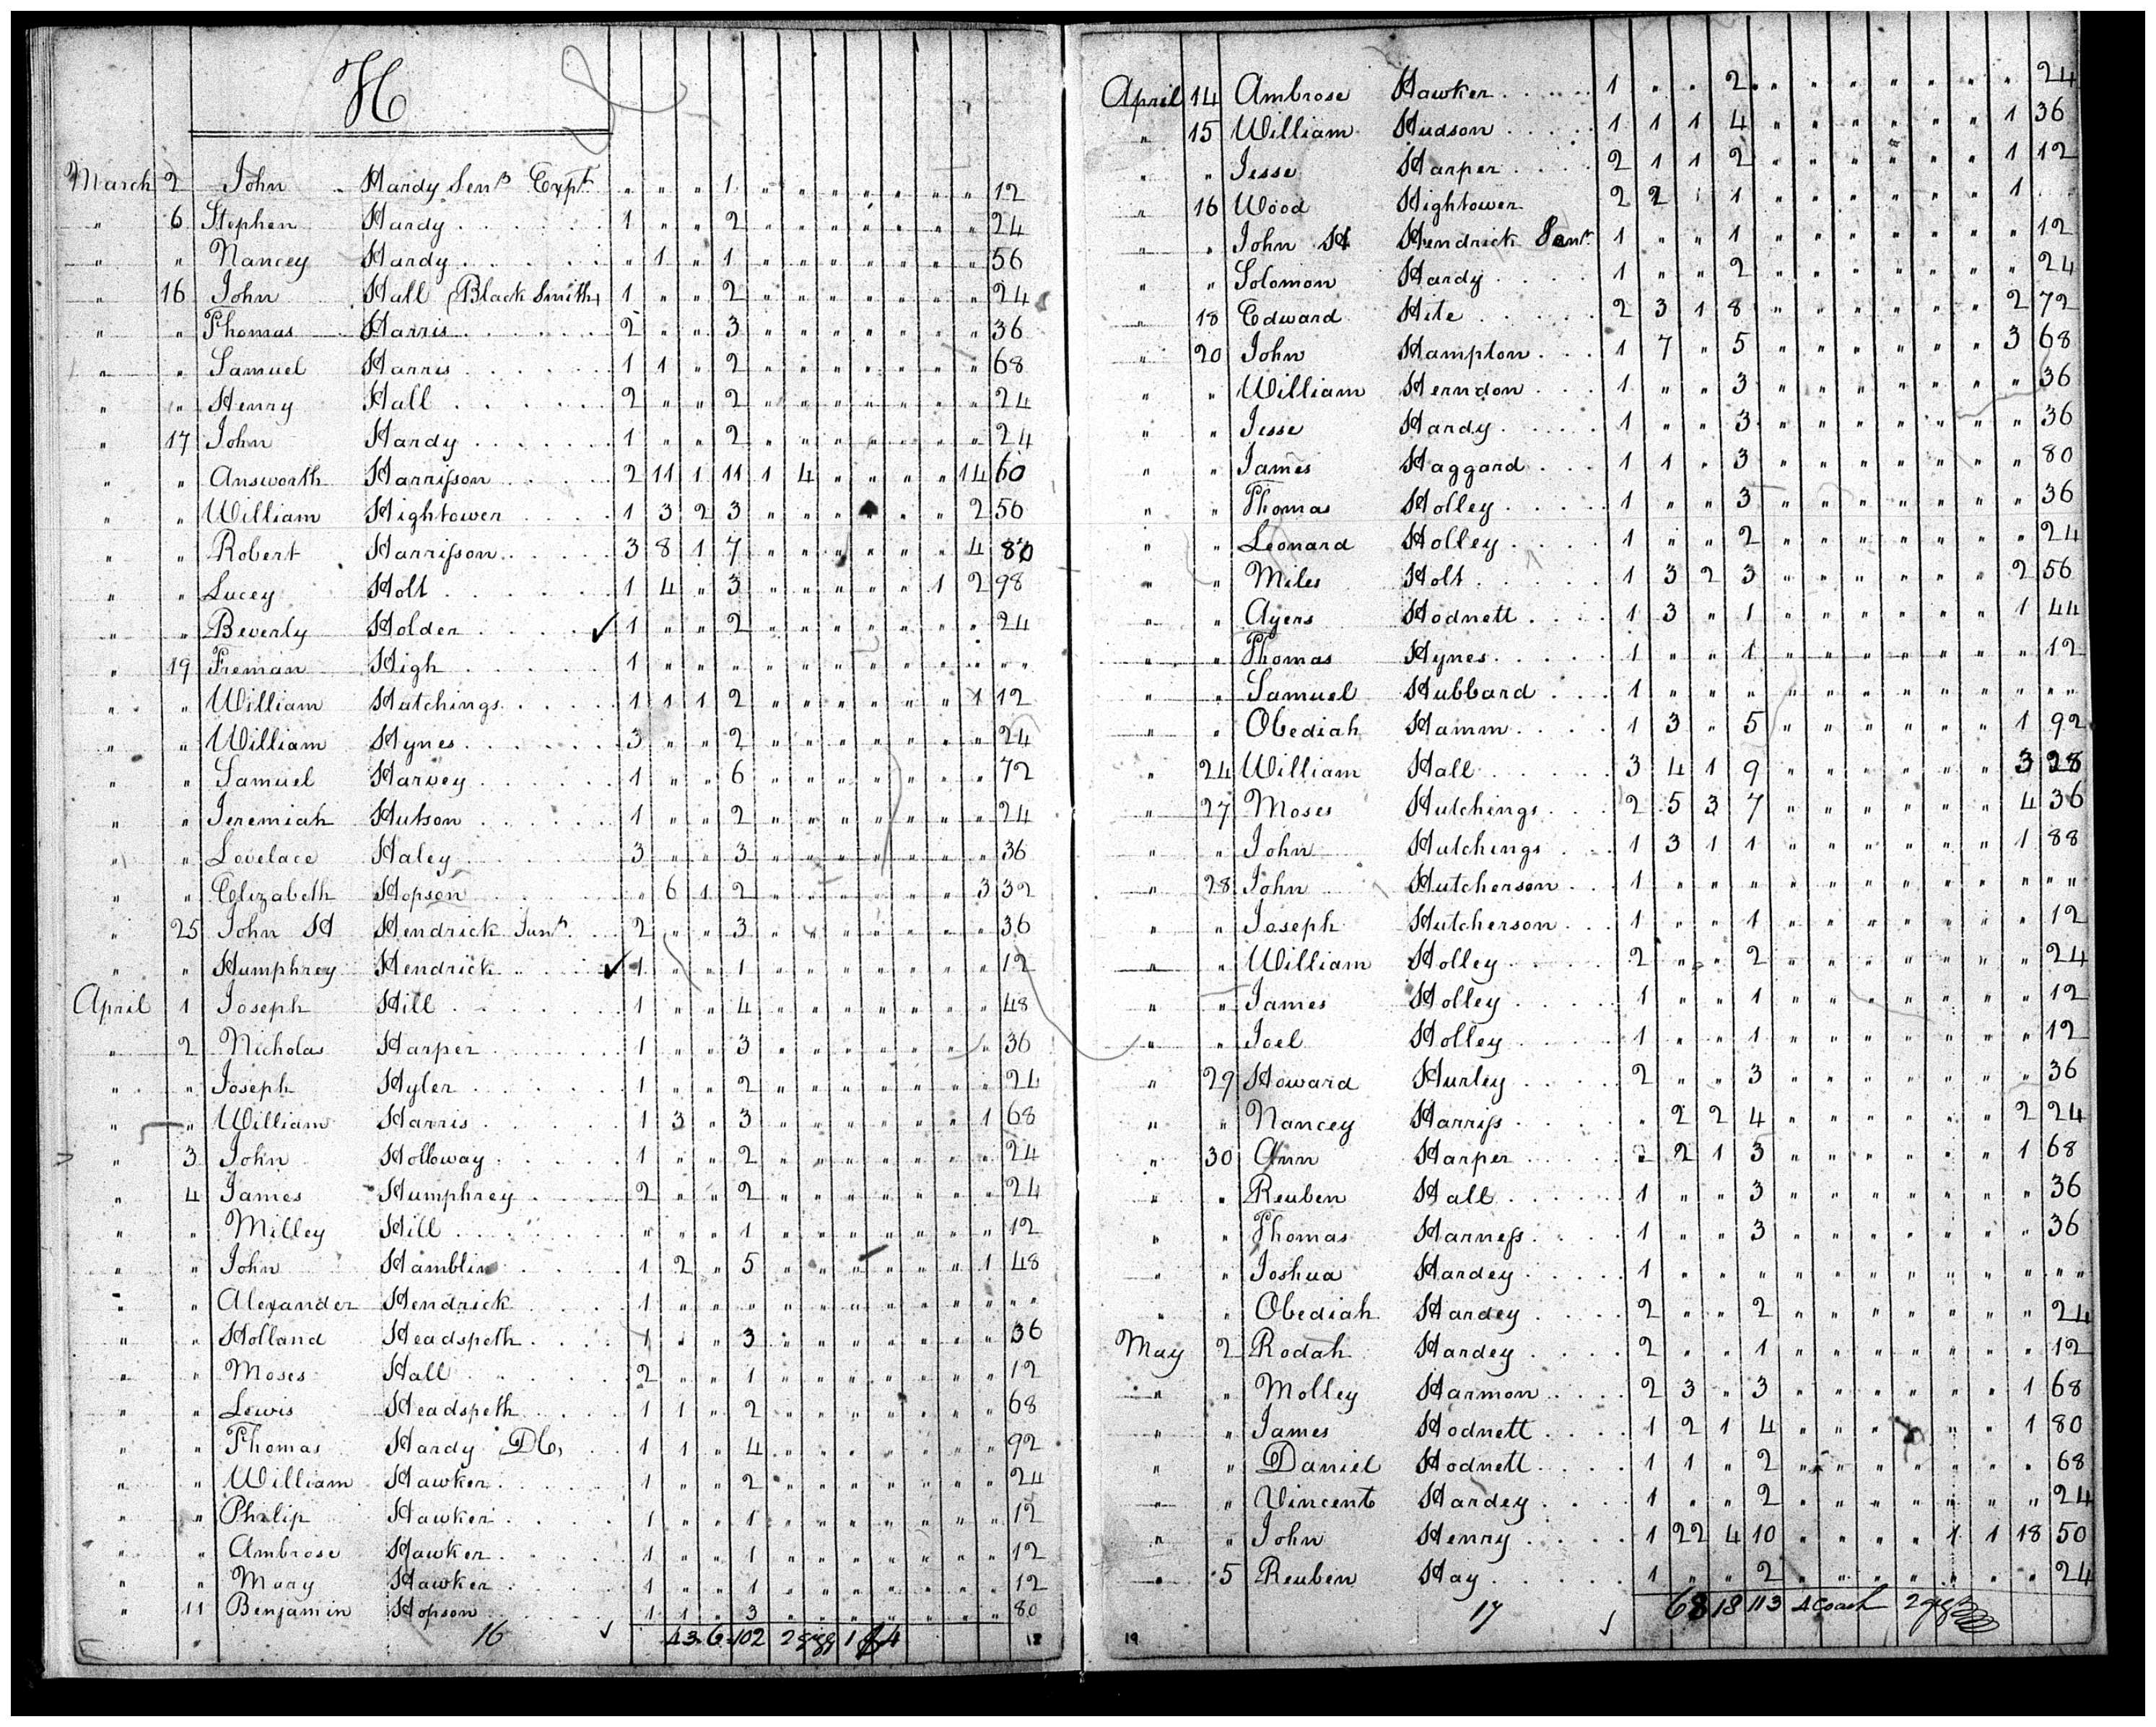 H
March 2 John Hardy Senr Expt " " " 1 " " " " " " " 12
" 6 Stephen Hardy 1 " " 2 " " " " " " " 24
" " Nancey Hardy " 1 " 1 " " " " " " " 56
" 16 John Hall (Black Smith) 1 " " 2 " " " " " " " 24
" " Thomas Harris 2 " " 3 " " " " " " " 36
" " Samuel Harris 1 1 " 2 " " " " " " " 68
" " Henry Hall 2 " " 2 " " " " " " " 24
" 17 John Hardy 1 " " 2 " " " " " " " 24
" " Answorth Harrisson 2 11 1 11 1 4 " " " " 14 60
" " William Hightower 1 3 2 3 " " " " " " 2 56
" " Robert Harrisson 3 8 1 7 " " " " " " 4 80
" " Lucey Holt 1 4 " 3 " " " " " 1 2 98
" " Beverly Holder ✓ 1 " " 2 " " " " " " " 24
" 19 Freman High 1 " " " " " " " " " " " "
" " William Hatchings 1 1 1 2 " " " " " " 1 12
" " William Hynes 3 " " 2 " " " " " " " 24
" " Samuel Harvey 1 " " 6 " " " " " " " 72
" " Jeremiah Hutson 1 " " 2 " " " " " " " 24
" " Lovelace Haley 3 " " 3 " " " " " " " 36
" " Elizabeth Hopson " 6 1 2 " " " " " " 3 32
" 25 John H Hendrick Junr 2 " " 3 " " " " " " " 36
" " Humphrey Hendrick ✓ 1 " " 1 " " " " " " " 12
April 1 Joseph Hill 1 " " 4 " " " " " " " 48
" 2 Nicholas Harper 1 " " 3 " " " " " " " 36
" " Joseph Hyler 1 " " 2 " " " " " " " 24
" " William Harris 1 3 " 3 " " " " " " 1 68
" 3 John Holloway 1 " " 2 " " " " " " " 24
" 4 James Humphrey 2 " " 2 " " " " " " " 24
" " Milley Hill " " " 1 " " " " " " " 12
" " John Hamblin 1 2 " 5 " " " " " " 1 48
" " Alexander Hendrick 1 " " " " " " " " " " " "
" " Holland Headspeth 1 " " 3 " " " " " " " 36
" " Moses Hall 2 " " 1 " " " " " " " 12
" " Lewis Headspeth 1 1 " 2 " " " " " " " 68
" " Thomas Hardy DC, 1 1 " 4 " " " " " " " 92
" " William Hawker 1 " " 2 " " " " " " " 24
" " Philip Hawker 1 " " 1 " " " " " " " 12
" " Ambrose Hawker 1 " " 1 " " " " " " " 12
" " Mary Hawker 1 " " 1 " " " " " " " 12
" 11 Benjamin Hopson 1 1 " 3 " " " " " " " 80
16 ✓ 43 6 102 2 gigg 1 4 18
April 14 Ambrose Hawker 1 " " 2 " " " " " " " 24
" 15 William Hudson 1 1 1 4 " " " " " " 1 36
" " Jesse Harper 2 1 1 2 " " " " " " 1 12
" 16 Wood Hightower 2 2 1 1 " " " " " " 1 " "
" " John H Hendrick Senr 1 " " 1 " " " " " " " 12
" " Solomon Hardy 1 " " 2 " " " " " " " 24
" 18 Edward Hite 2 3 1 8 " " " " " " 2 72
" 20 John Hampton 1 7 " 5 " " " " " " 3 68
" " William Herndon 1 " " 3 " " " " " " " 36
" " Jesse Hardy 1 " " 3 " " " " " " " 36
" " James Haggard 1 1 " 3 " " " " " " " 80
" " Thomas Holley 1 " " 3 " " " " " " " 36
" " Leonard Holley 1 " " 2 " " " " " " " 24
" " Miles Holt 1 3 2 3 " " " " " " 2 56
" " Ayers Hodnett 1 3 " 1 " " " " " " 1 44
" " Thomas Hynes 1 " " 1 " " " " " " " 12
" " Samuel Hubbard 1 " " " " " " " " " " " "
" " Obediah Hamm 1 3 " 5 " " " " " " 1 92
" 24 William Hall 3 4 1 9 " " " " " " 3 28
" 27 Moses Hutchings 2 5 3 7 " " " " " " 4 36
" " John Hutchings 1 3 1 1 " " " " " " 1 88
" 28 John Hutcherson 1 " " " " " " " " " " " "
" " Joseph Hutcherson 1 " " 1 " " " " " " " 12
" " William Holley 2 " " 2 " " " " " " " 24
" " James Holley 1 " " 1 " " " " " " " 12
" " Joel Holley 1 " " 1 " " " " " " " 12
" 29 Howard Hurley 2 " " 3 " " " " " " " 36
" " Nancey Harriss " 2 2 4 " " " " " " 2 24
" 30 Ann Harper 2 2 1 3 " " " " " " 1 68
" " Reuben Hall 1 " " 3 " " " " " " " 36
" " Thomas Harness 1 " " 3 " " " " " " " 36
" " Joshua Hardey 1 " " " " " " " " " " " "
" " Obediah Hardey 2 " " 2 " " " " " " " 24
May 2 Rodah Hardey 2 " " 1 " " " " " " " 12
" " Molley Harmon 2 3 " 3 " " " " " " 1 68
" " James Hodnett 1 2 1 4 " " " " " " 1 80
" " Daniel Hodnett 1 1 " 2 " " " " " " " 68
" " Vincent Hardey 1 " " 2 " " " " " " " 24
" " John Henry 1 22 4 10 " " " " 1 1 18 50
" 5 Reuben Hay 1 " " 2 " " " " " " " 24
19 17 ✓ 68 18 113 1 Coach 2 gigs